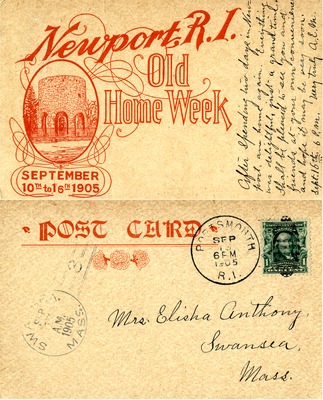 Newport, R.I.
Old
Home Week
SEPTEMBER
10TH to 16TH 1905
After spending two days in New-
port, am home again. Everything
was delightful, just a grand time.
Should be pleased to see you and
friends at your own convenience
and hope it may be very soon.
Sept 16th 6 P.M. Very truly A.E.M.
POST CARD
PORTSMOUTH
SEP
6PM
1905
R.I.
1
SWA
SEP
A.M.
1905
MASS.
Mrs. Elisha Anthony
Swansea,
Mass.